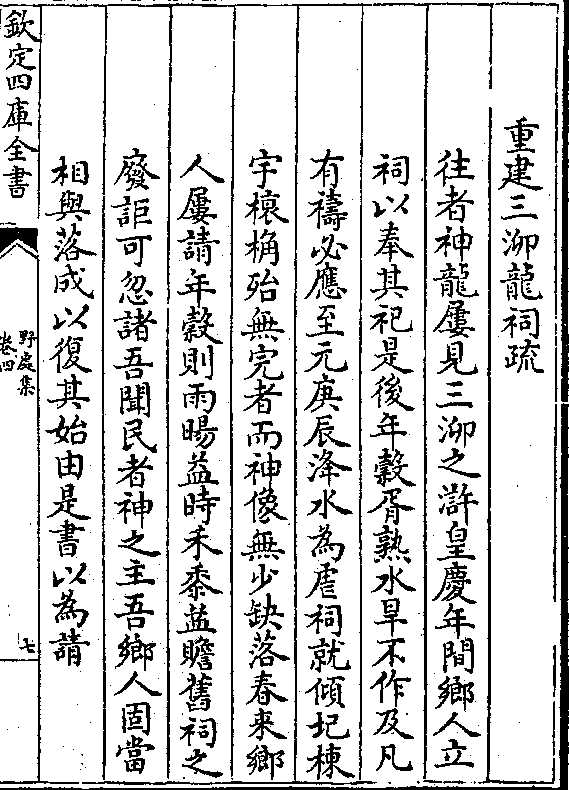 重建三泖龍祠疏
往者神龍屢見三泖之滸皇慶年間鄉人立
祠以奉其祀是後年穀胥熟水旱不作及凡
有禱必應至元庚辰洚水為虐祠就傾圮棟
宇榱桷殆無完者而神像無少缺落春來鄉
人屢請年穀則雨暘益時禾黍益贍舊祠之
廢詎可忽諸吾聞民者神之主吾鄉人固當
相與落成以復其始由是書以為請
欽定四庫全書
野處集
卷四
七